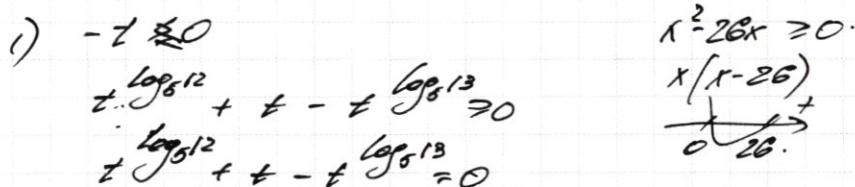 1) -t ≤ 0
t^{log_5 12} + t - t^{log_5 13} ≥ 0
t^{log_5 12} + t - t^{log_5 13} = 0
x² - 26x ≥ 0.
x(x-26)
+
0 26.